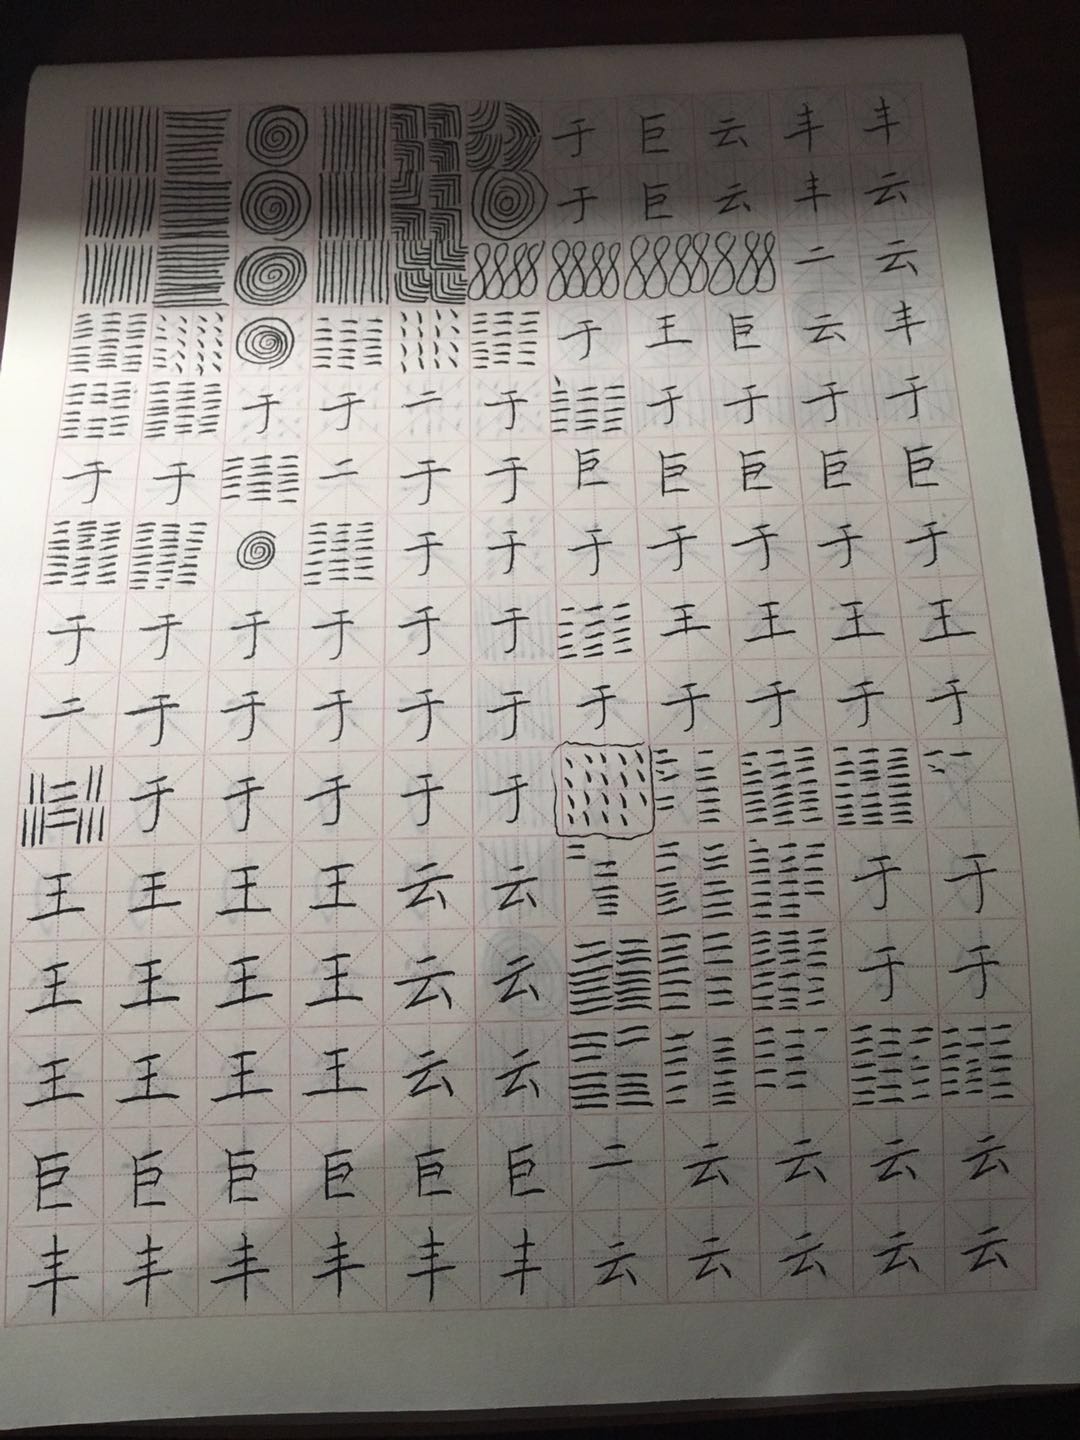 于 巨 云 丰 丰
于 巨 云 丰 云
二 云
于 王 巨 云 丰
于 于 二 于 于 于 于 于
于 于 二 于 于 巨 巨 巨 巨 巨
于 于 于 于 于 于 于
于 于 于 于 于 于 王 王 王 王
二 于 于 于 于 于 于 于 于 于 于
于 于 于 于 于
王 王 王 王 云 云 于 于
王 王 王 王 云 云 于 于
王 王 王 王 云 云
巨 巨 巨 巨 巨 巨 二 云 云 云 云
丰 丰 丰 丰 丰 丰 云 云 云 云 云